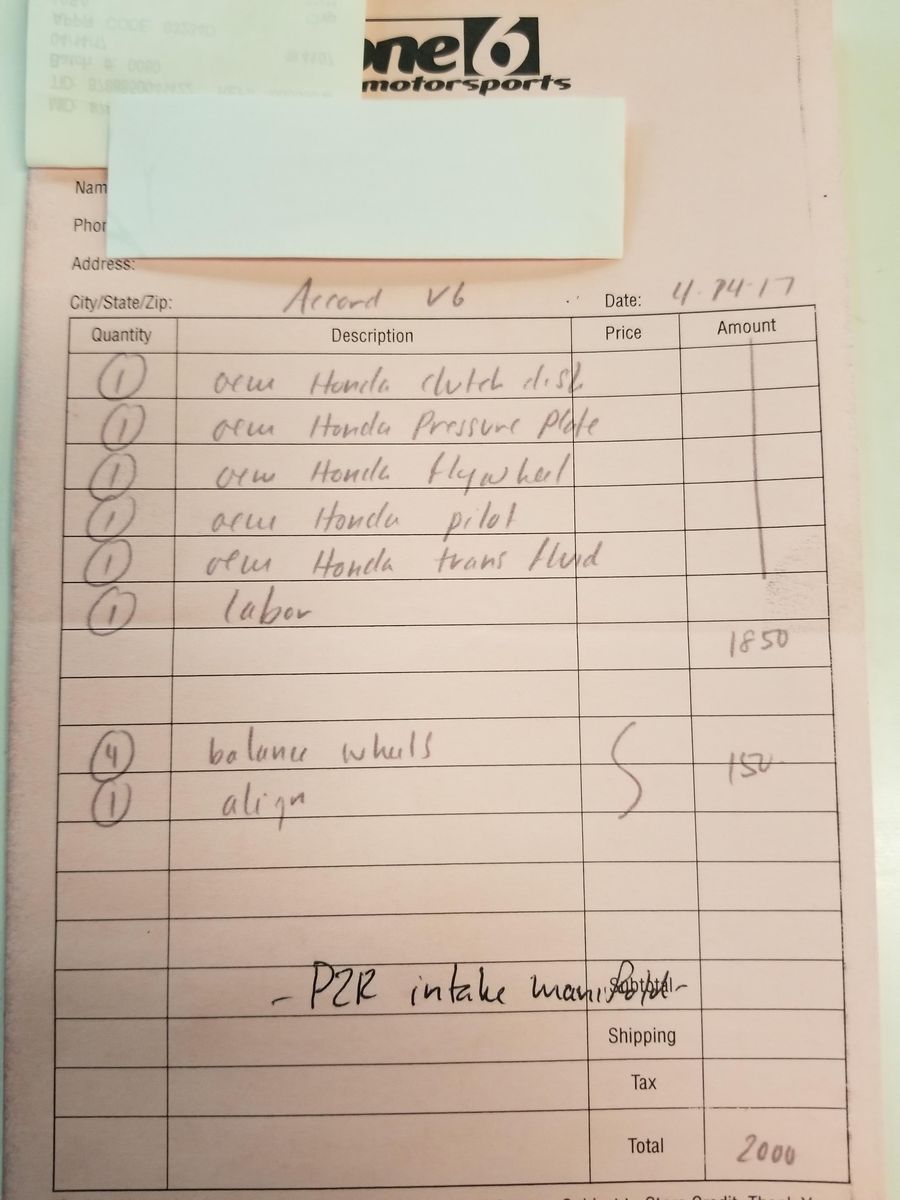 one6
motorsports
Nam
Phon
Address:
City/State/Zip: Accord V6 Date: 4-14-17
Quantity Description Price Amount
1 oem Honda clutch disk
1 oem Honda Pressure Plate
1 oem Honda flywheel
1 oem Honda pilot
1 oem Honda trans fluid
1 labor
1850
4 balance wheels 150
1 align
- P2R intake manifold -
Subtotal
Shipping
Tax
Total 2000